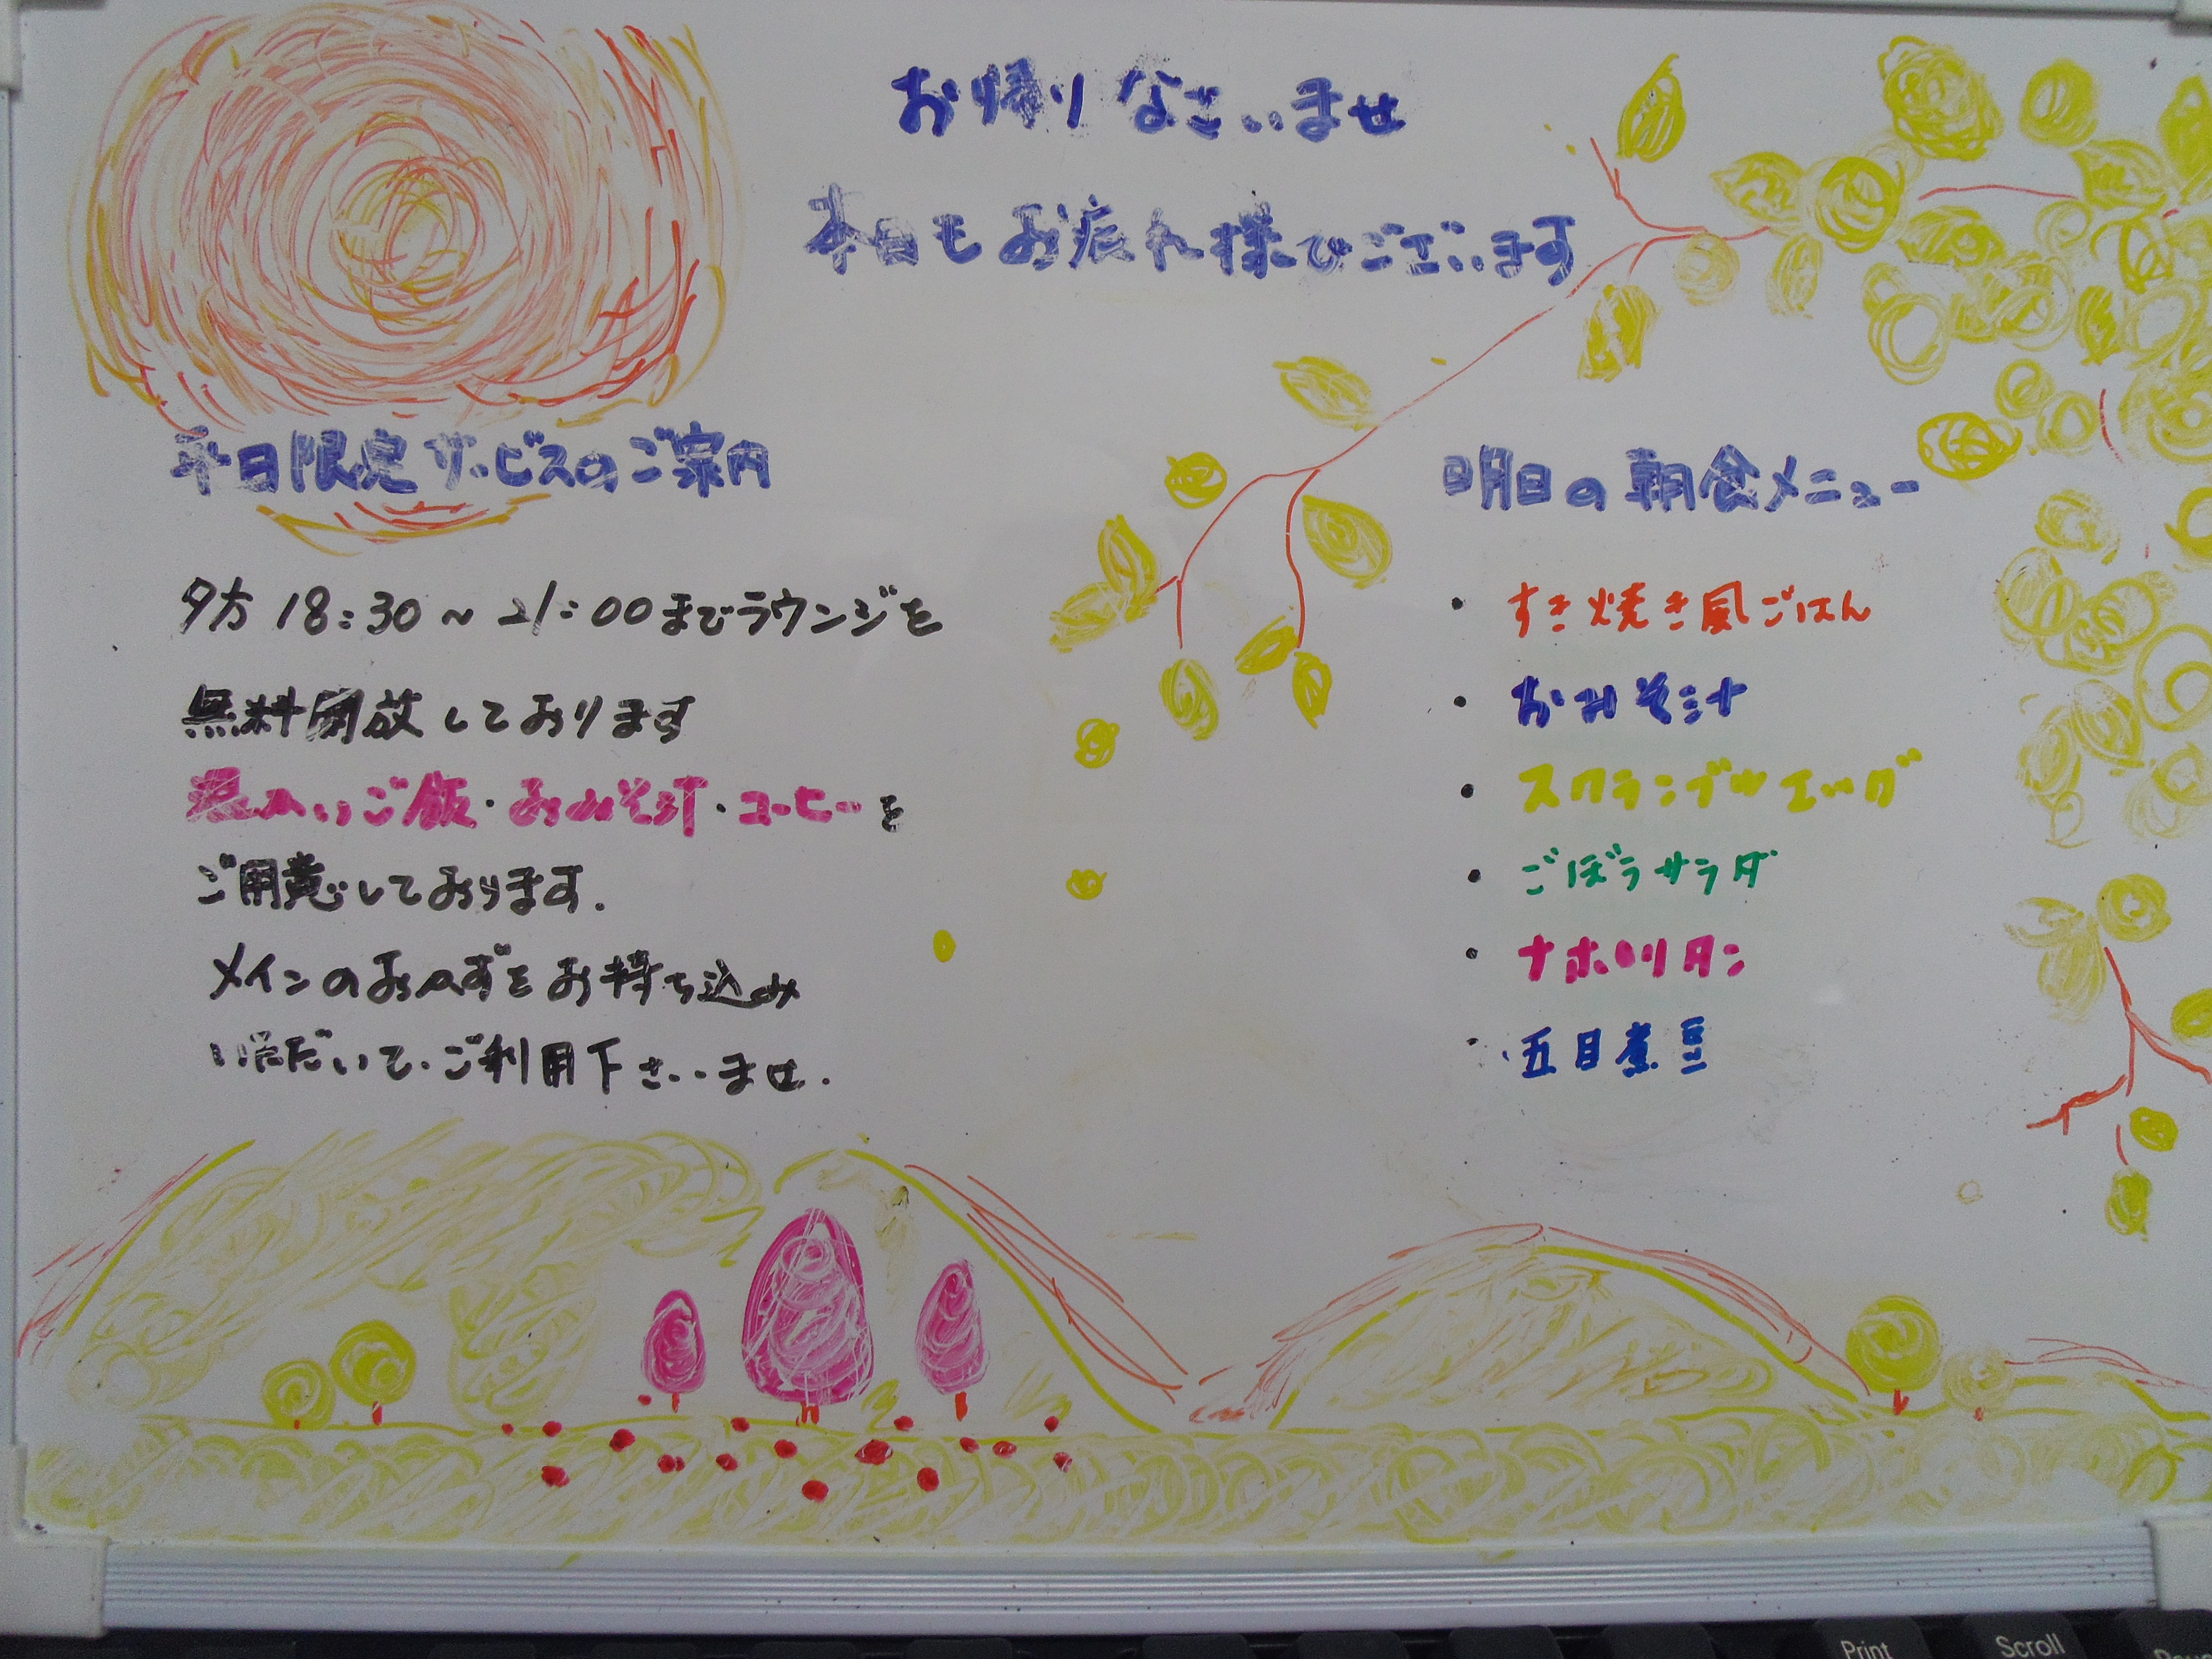 お帰りなさいませ
本日もお疲れ様でございます
平日限定サービスのご案内
夕方 18:30～21:00までラウンジを
無料開放しております
温かいご飯・おみそ汁・コーヒーを
ご用意しております.
メインのおかずをお持ち込み
いただいて、ご利用下さいませ.
明日の朝食メニュー
・すき焼き風ごはん
・おみそ汁
・スクランブルエッグ
・ごぼうサラダ
・ナポリタン
・五目煮豆
Print
Scroll